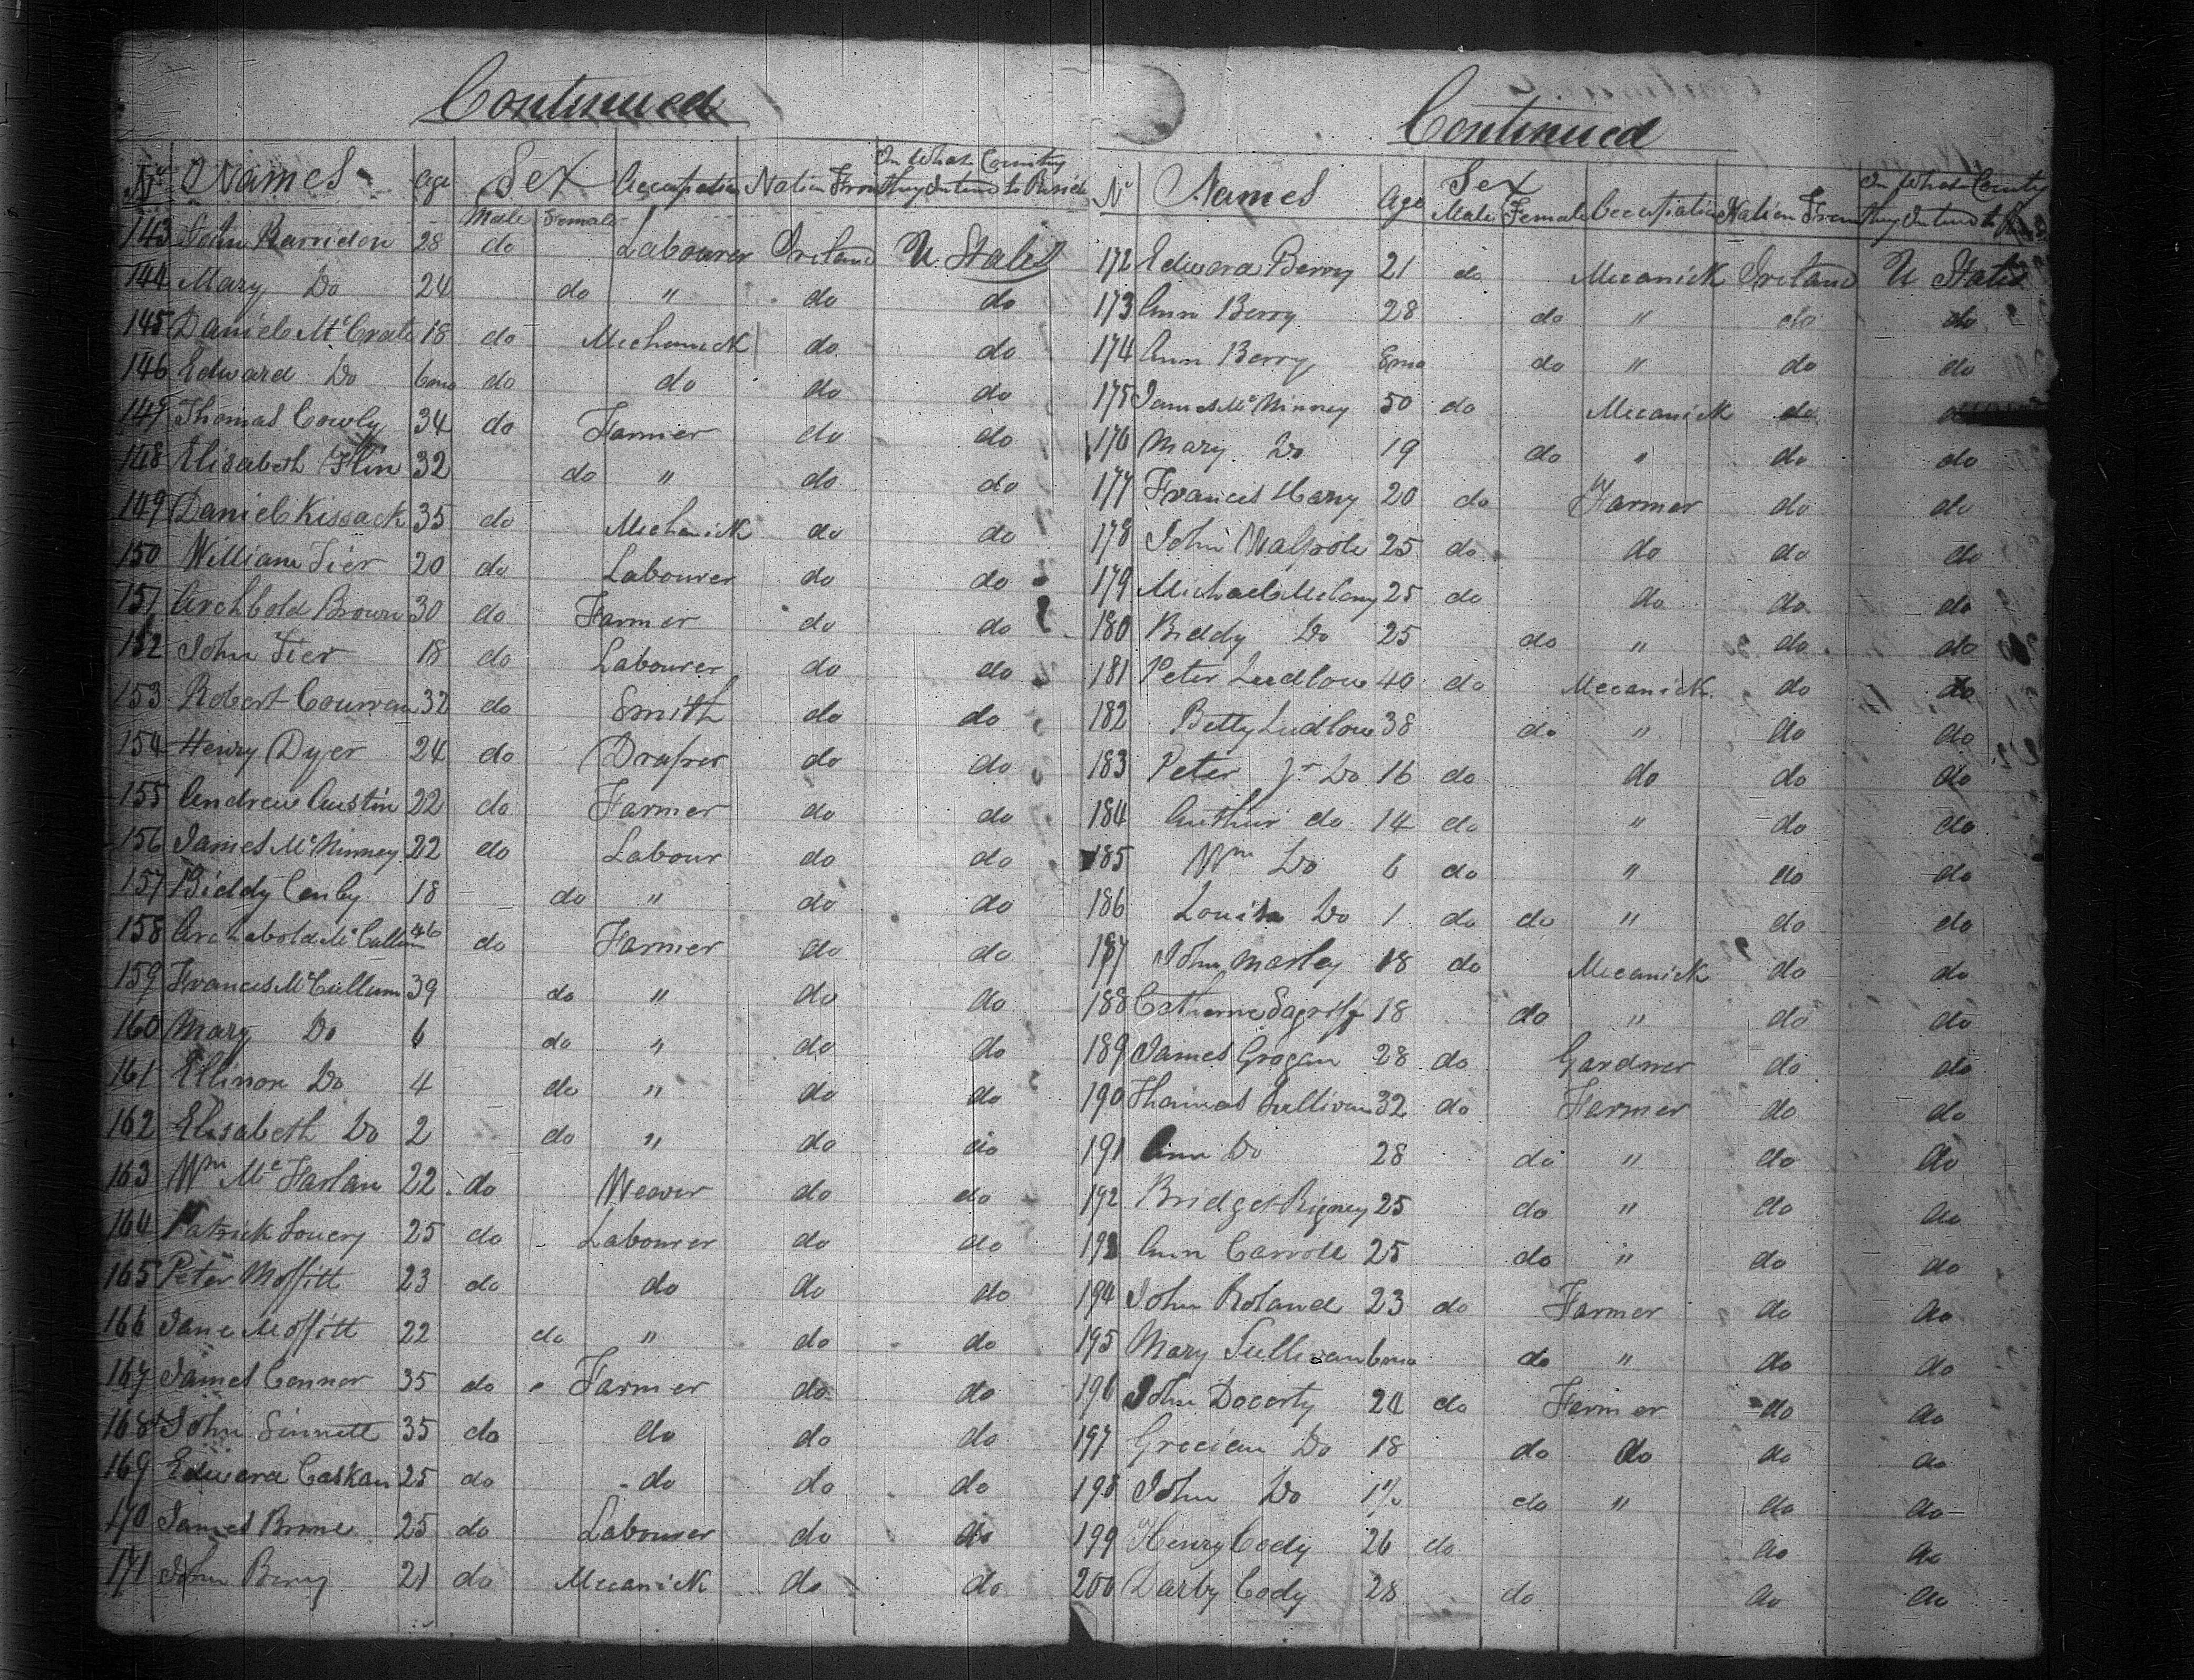 Continued
No Names Age Sex Occupation Nation From In What Country they Intend to Reside
Male Female
143 John 28 do Labourer Ireland U States
144 Mary Do 24 do " do do
145 Daniel McCrate 18 do Mechanick do do
146 Edward Do 6mo do do do do
147 Thomas Cowly 34 do Farmer do do
148 Elisabeth Flin 32 do " do do
149 Daniel Kissack 35 do Mechanick do do
150 William Tier 20 do Labourer do do
151 Archbold Brown 30 do Farmer do do
152 John Tier 18 do Labourer do do
153 Robert 32 do Smith do do
154 Henry Dyer 24 do Draper do do
155 Andrew Austin 22 do Farmer do do
156 James McNinney 22 do Labour do do
157 Biddy 18 do " do do
158 Archabold McCullum 46 do Farmer do do
159 Frances McCullum 39 do " do do
160 Mary Do 6 do " do do
161 Ellinor Do 4 do " do do
162 Elisabeth Do 2 do " do do
163 Wm McFarlan 22 do Weaver do do
164 Patrick 25 do Labourer do do
165 Peter Moffitt 23 do do do do
166 Jane Moffitt 22 do " do do
167 James Conner 35 do Farmer do do
168 John Sinnett 35 do do do do
169 Edward Caskan 25 do do do do
170 James 25 do Labourer do do
171 John Berry 21 do Mecanick do do
Continued
No Names Age Sex Occupation Nation From In What County they Intend to
Male Female
172 Edward Berry 21 do Mecanick Ireland U States
173 Ann Berry 28 do " do do
174 Ann Berry 8mo do " do do
175 James McNinney 50 do Mecanick do
176 Mary Do 19 do " do do
177 Frances 20 do Farmer do do
178 John Walpole 25 do do do do
179 Michael Melony 25 do do do do
180 Biddy Do 25 do " do do
181 Peter Ludlow 40 do Mecanick do do
182 Betty Ludlow 38 do " do do
183 Peter Jr Do 16 do do do do
184 Authur do 14 do " do do
185 Wm Do 6 do " do do
186 Louisa Do 1 do do " do do
187 John Marley 18 do Mecanick do do
188 Catherine 18 do " do do
189 James Grogan 28 do Gardner do do
190 Thomas Sullivan 32 do Farmer do do
191 Ann Do 28 do " do do
192 Bridget Rigney 25 do " do do
193 Ann Carroll 25 do " do do
194 John Roland 23 do Farmer do do
195 Mary Sullivan 6mo do " do do
196 John Docorty 24 do Farmer do do
197 Grecian Do 18 do do do do
198 John Do do " do do
199 Henry Cody 26 do do do
200 Darby Cody 28 do do do